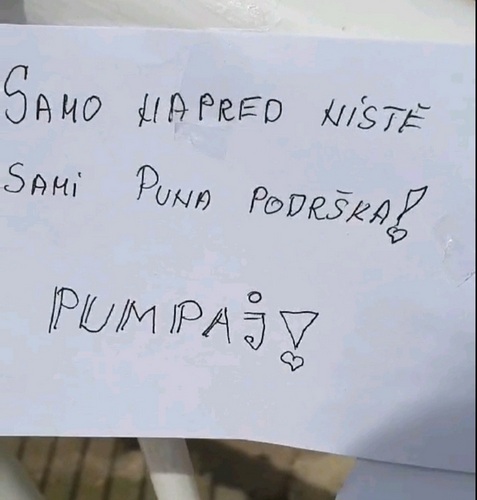 SAMO NAPRED NISTE
SAMI PUNA PODRŠKA!
PUMPAJ!